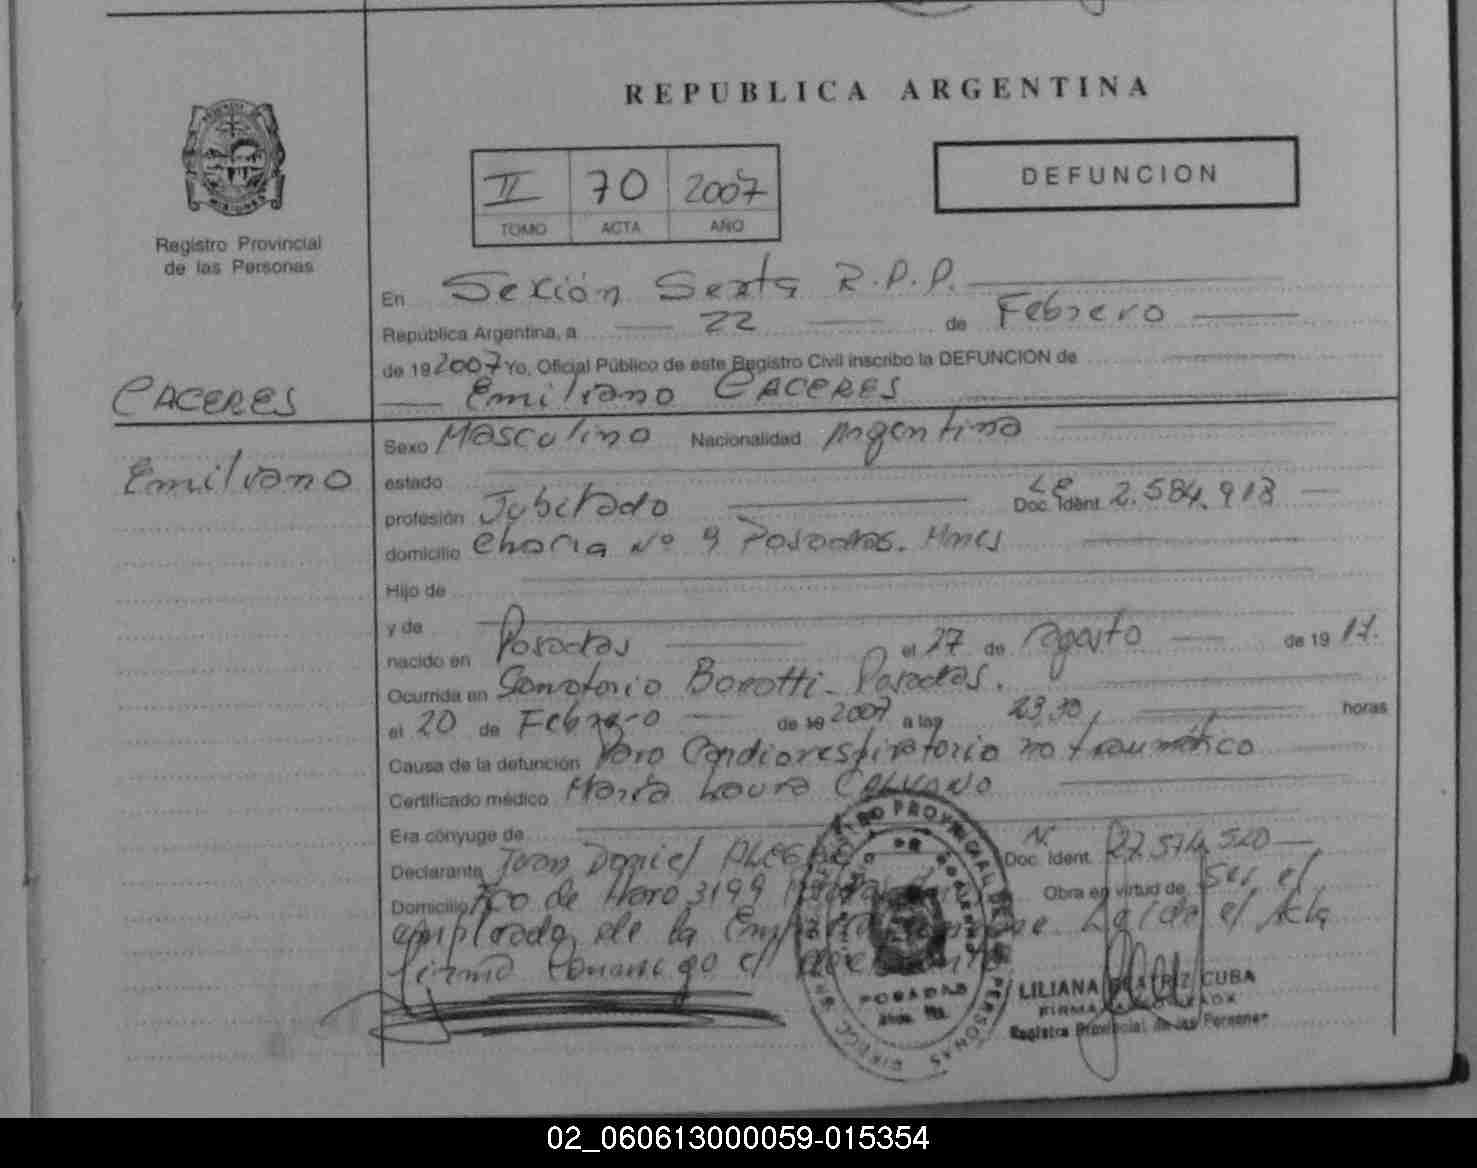 REPUBLICA ARGENTINA
II 70 2007
TOMO ACTA AÑO
DEFUNCION
Registro Provincial
de las Personas
En Sexión Sexta R.P.P.
República Argentina, a 22 de Febrero
de 19 2007 Yo, Oficial Público de este Registro Civil inscribo la DEFUNCION de
Emiliano CACERES
CACERES
Emiliano
Sexo Masculino Nacionalidad Argentina
estado
profesión Jubilado Doc. Ident. LE 2.584.913
domicilio Chacra Nº 9 Posadas. Mnes
Hijo de
y de
nacido en Posadas el 27 de Agosto de 19 17.
Ocurrida en Sanatorio Borotti - Posadas.
el 20 de Febrero de 19 2007 a las 23,30 horas
Causa de la defunción Paro Cardiorespiratorio no traumático
Certificado médico María Laura GALVANO
Era cónyuge de
Declarante Juan Daniel Doc. Ident. 22.574.520
Domicilio Fco de Haro 3199 Obra en virtud de Ser el
empleado de la Leída el Acta
firma conmigo el
REGISTRO PROVINCIAL DE LAS PERSONAS
POSADAS
LILIANA BEATRIZ CUBA
FIRMA AUTORIZADA
Registro Provincial de las Personas
02_060613000059-015354